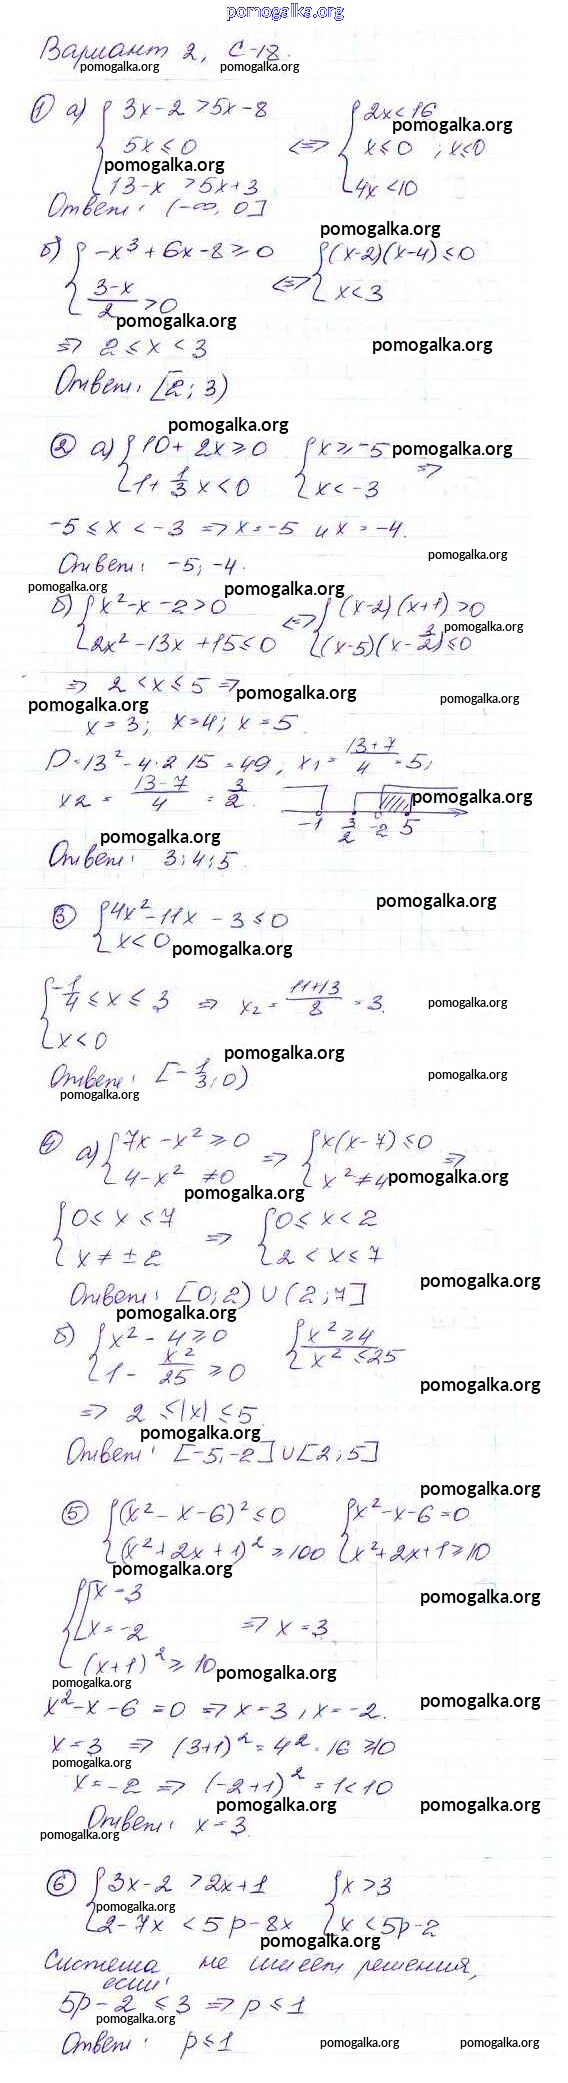 pomogalka.org
Вариант 2, С-18.
pomogalka.org pomogalka.org
① а) { 3x-2 > 5x-8 { 2x<16
pomogalka.org
5x ≤ 0 <=> x≤0 ; x≤0
pomogalka.org
13-x > 5x+3 4x<10
Ответ: (-∞, 0]
pomogalka.org
б) { -x³ + 6x-8 ≥ 0 { (x-2)(x-4) ≤ 0
(3-x)/2 > 0 <=> x<3
pomogalka.org
=> 2 ≤ x < 3 pomogalka.org
Ответ: [2; 3)
pomogalka.org
② а) { 10+2x ≥ 0 { x ≥ -5 pomogalka.org
1+ 1/3 x < 0 x < -3 =>
-5 ≤ x < -3 => x = -5 и x = -4.
pomogalka.org
Ответ: -5; -4.
pomogalka.org pomogalka.org
б) { x²-x-2>0 { (x-2)(x+1)>0
pomogalka.org
2x²-13x+15≤0 <=> (x-5)(x-3/2)≤0
=> 2<x≤5 => pomogalka.org pomogalka.org
pomogalka.org
x=3; x=4; x=5.
D=13²-4·2 15 = 49; x1 = (13+7)/4 = 5;
x2 = (13-7)/4 = 3/2. pomogalka.org
-1 3/2 -2 5
pomogalka.org
Ответ: 3; 4; 5.
pomogalka.org
③ { 4x²-11x-3≤0
x<0 pomogalka.org
{ -1/4 ≤ x ≤ 3 => x2 = (11+13)/8 = 3. pomogalka.org
x<0
pomogalka.org
Ответ: [-1/3; 0) pomogalka.org
pomogalka.org
④ а) { 7x-x² ≥ 0 => { x(x-7) ≤ 0 =>
4-x² ≠ 0 x² ≠ 4 pomogalka.org
pomogalka.org
{ 0 ≤ x ≤ 7 => { 0 ≤ x < 2
x ≠ ±2 2 < x ≤ 7
pomogalka.org
Ответ: [0; 2) ∪ (2; 7]
pomogalka.org
б) { x²-4≥0 { x²≥4
1 - x²/25 ≥ 0 x² ≤ 25
pomogalka.org
=> 2 ≤ |x| ≤ 5.
Ответ: [-5; -2] ∪ [2; 5]
pomogalka.org
⑤ { (x²-x-6)² ≤ 0 { x²-x-6=0
(x²+2x+1)² ≥ 100 x²+2x+1≥10
pomogalka.org
{ [ x-3 pomogalka.org
x=-2 => x=3
(x+1)² ≥ 10 pomogalka.org
pomogalka.org
x²-x-6=0 => x=3, x=-2. pomogalka.org
x=3 => (3+1)² = 4² = 16 ≥ 10
pomogalka.org
x=-2 => (-2+1)² = 1 < 10
pomogalka.org pomogalka.org
Ответ: x=3.
pomogalka.org
⑥ { 3x-2 > 2x+1 { x>3
pomogalka.org
2-7x < 5p-8x x<5p-2
pomogalka.org
Система не имеет решения,
если:
5p-2 ≤ 3 => p ≤ 1
pomogalka.org
Ответ: p≤1 pomogalka.org pomogalka.org